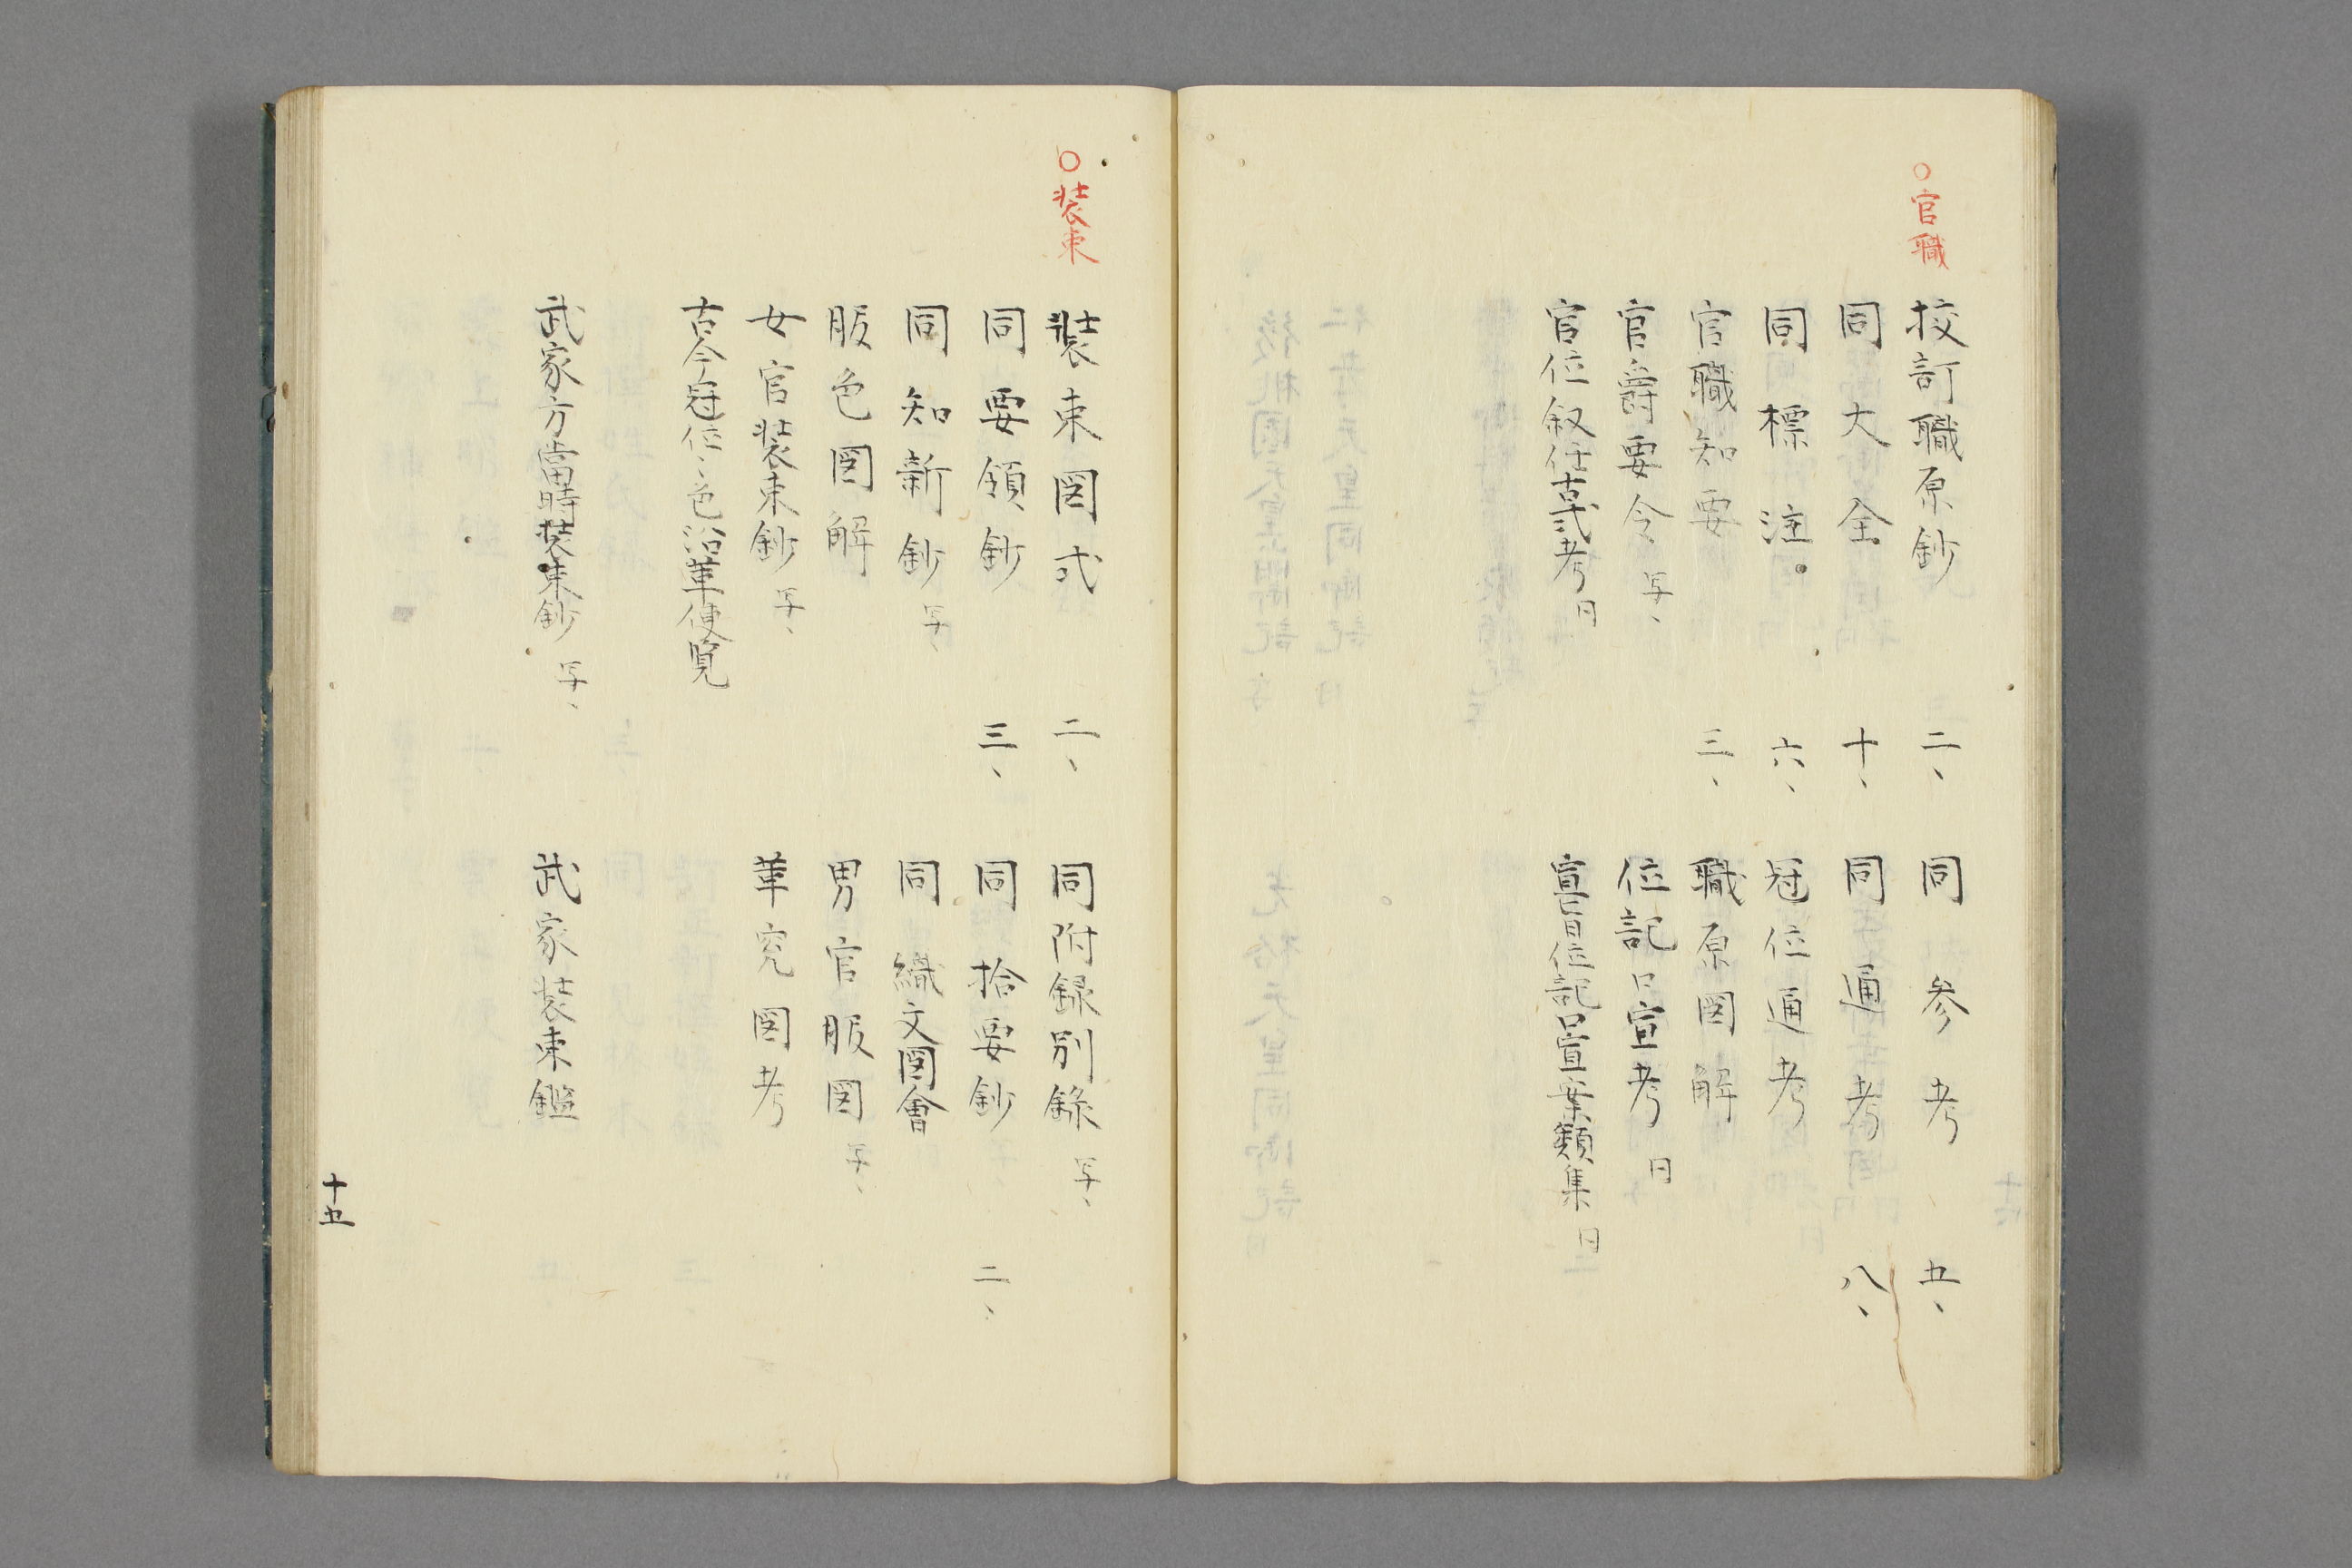 ○官職
挍訂職原鈔 二、 同参考 五、
同大全 十、 同通考 八、
同標注 六、 冠位通考
官職知要 三、 職原図解
官爵要令 写、 位記口宣考 日
官位叙任古式考 日 宣旨位記口宣案類集 日
○装束
装束図式 二、 同附録別録 写、
同要領鈔 三、 同拾要鈔 二、
同知新鈔 写、 同織文図會
服色図解 男官服図 写、
女官装束鈔 写、 革究図考
古今冠位、色沿革便覧
武家方當時装束鈔 写、 武家装束鑑
十五